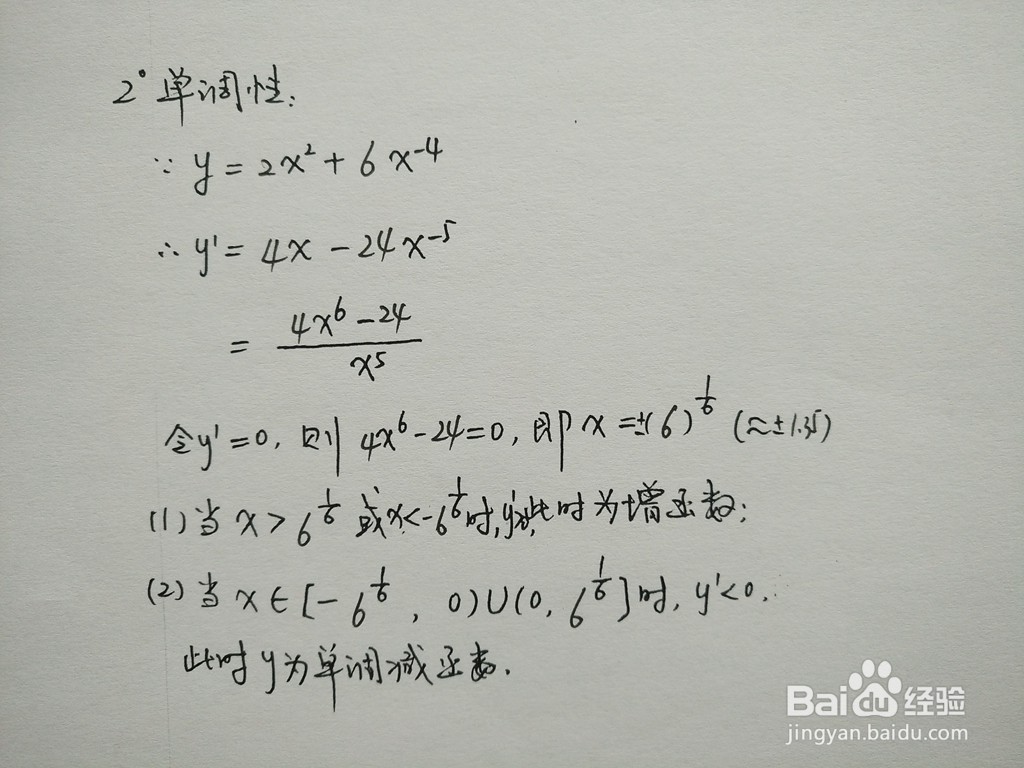 2° 单调性:
∵ y = 2x² + 6x⁻⁴
∴ y' = 4x - 24x⁻⁵
= (4x⁶ - 24)/x⁵
令y'=0, 则 4x⁶-24=0, 即 x=±(6)^(1/6) (≈±1.35)
(1) 当 x > 6^(1/6) 或x<-6^(1/6)时, 此时为增函数;
(2) 当 x∈[-6^(1/6), 0)∪(0, 6^(1/6)]时, y'<0.
此时y为单调减函数.
Baidu经验
jingyan.baidu.com